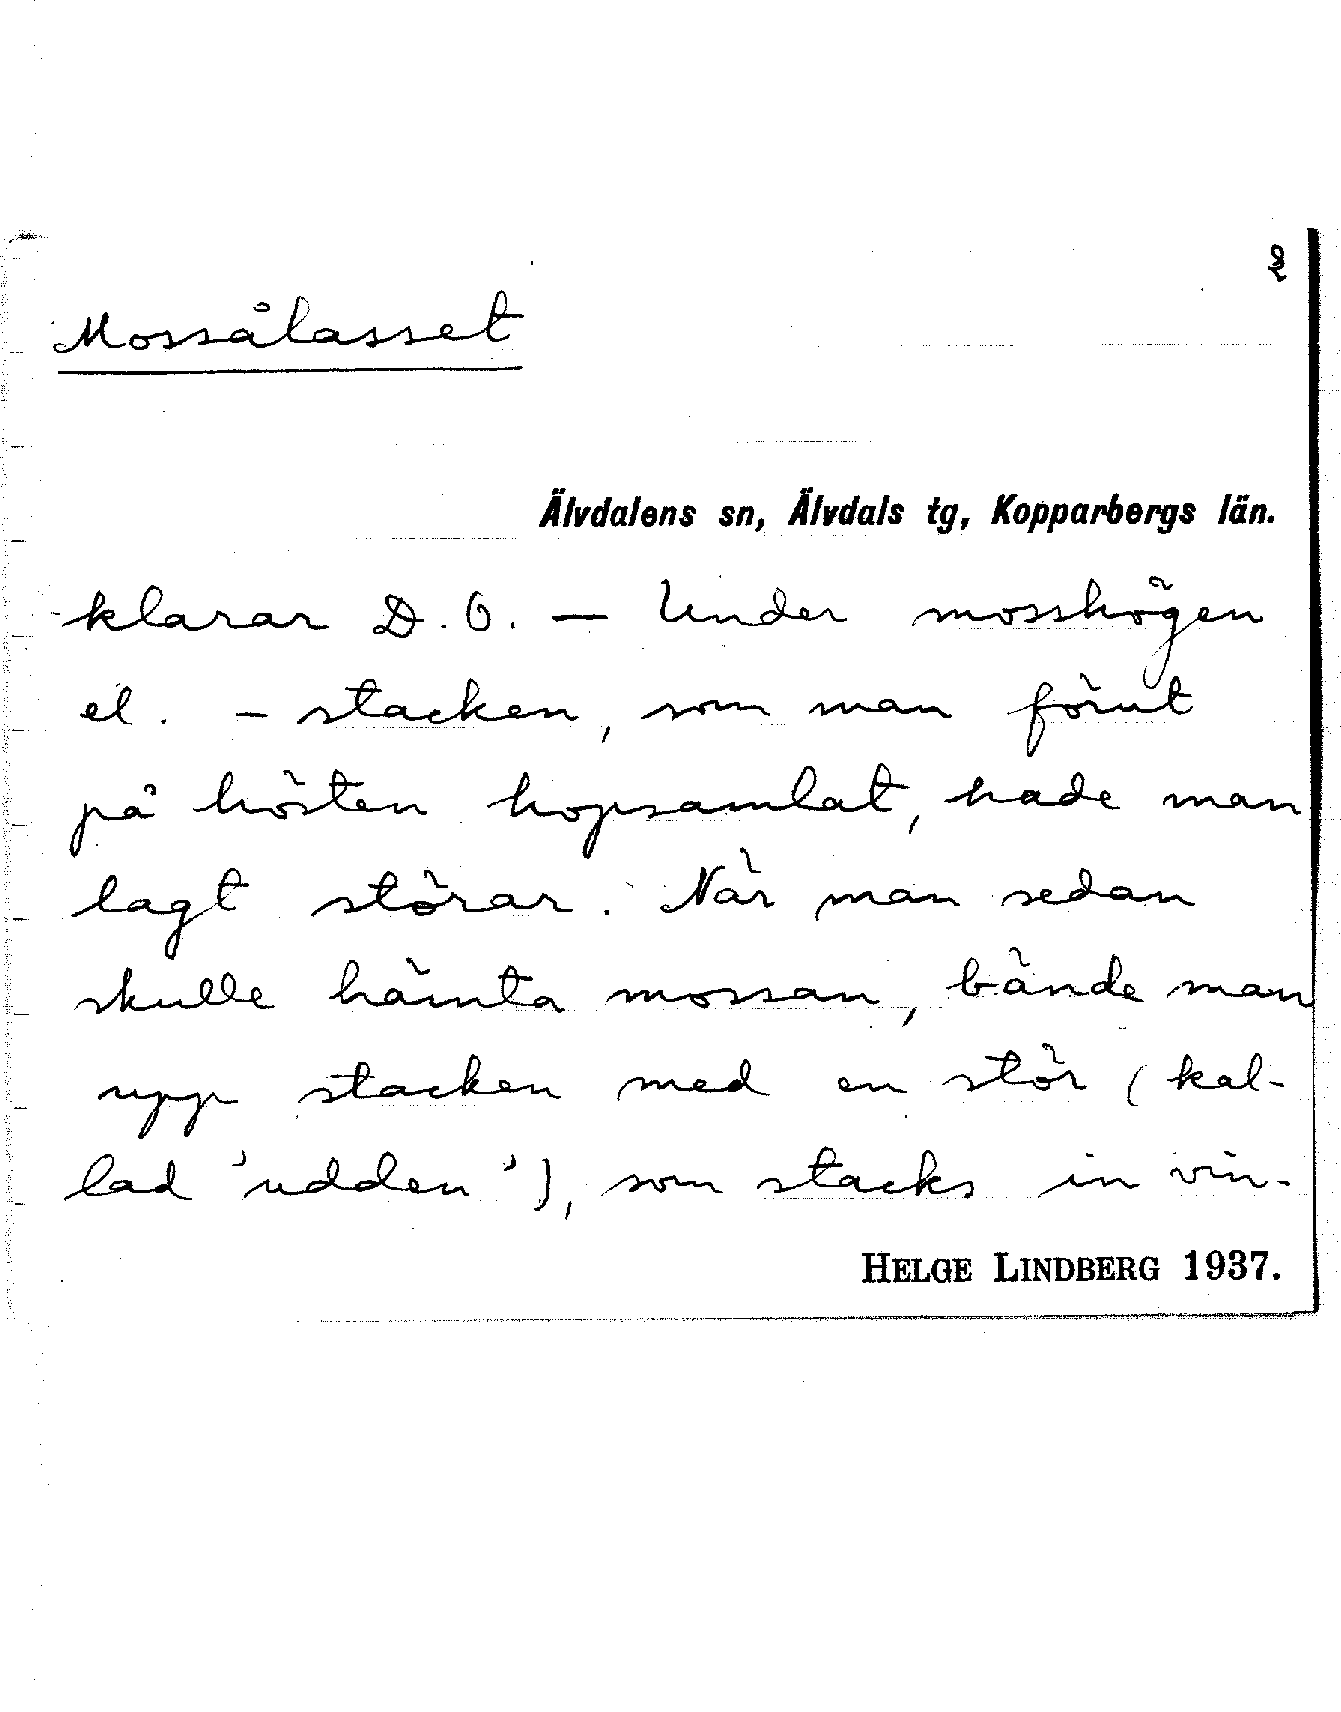 2
Mossålasset
Älvdalens sn, Älvdals tg, Kopparbergs län.
klarar D. O. — Under mosshögen
el. - stacken, som man förut
på hösten hopsamlat, hade man
lagt störar. När man sedan
skulle hämta mossan, bände man
upp stacken med en stör (kal-
lad 'udden'), som stacks in vin-
HELGE LINDBERG 1937.